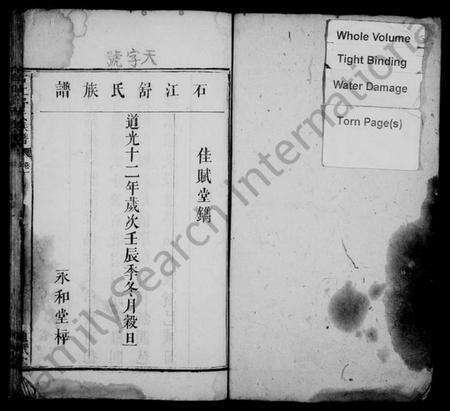 天字號
石江舒氏族譜
佳賦堂鐫
道光十二年歲次壬辰季冬月穀旦
永和堂梓
Whole Volume
Tight Binding
Water Damage
Torn Page(s)
FamilySearch International